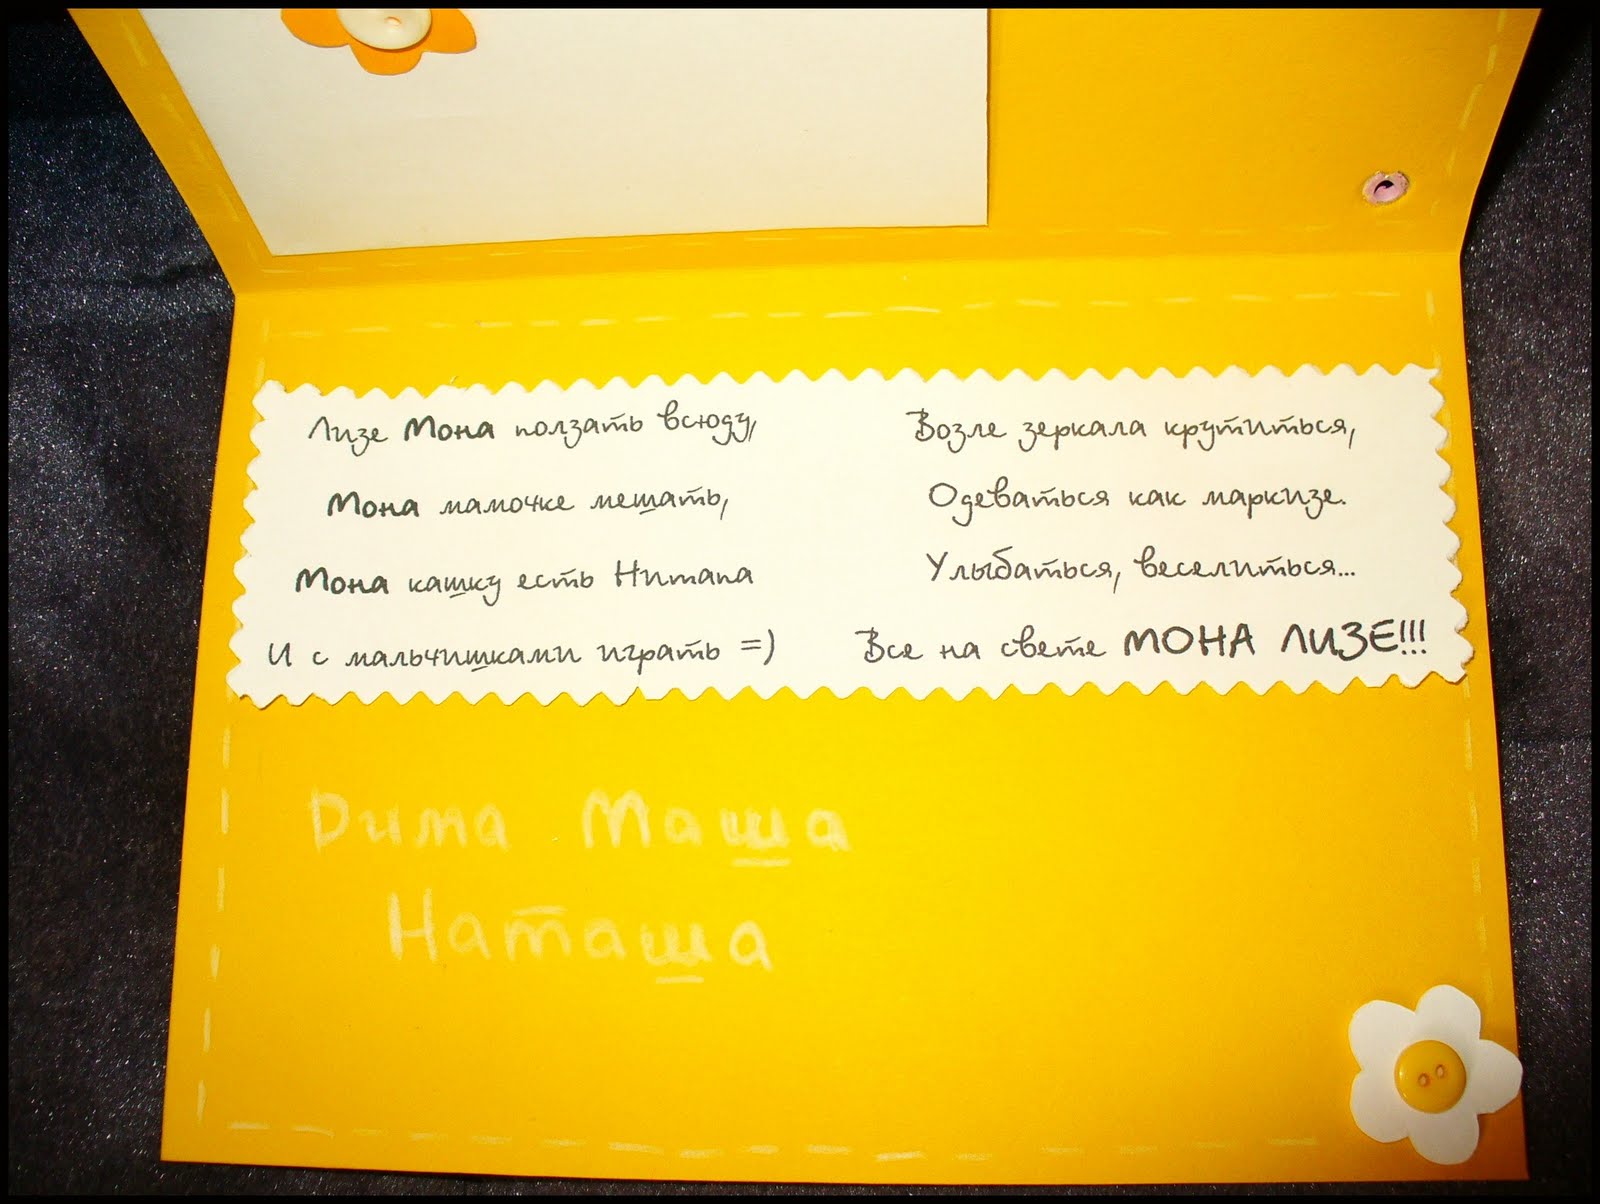 Лизе Мона ползать всюду,
Мона мамочке мешать,
Мона кашку есть Нитапа
И с мальчишками играть =)
Возле зеркала крутиться,
Одеваться как маркизе.
Улыбаться, веселиться...
Все на свете МОНА ЛИЗЕ!!!
Дима Маша
Наташа